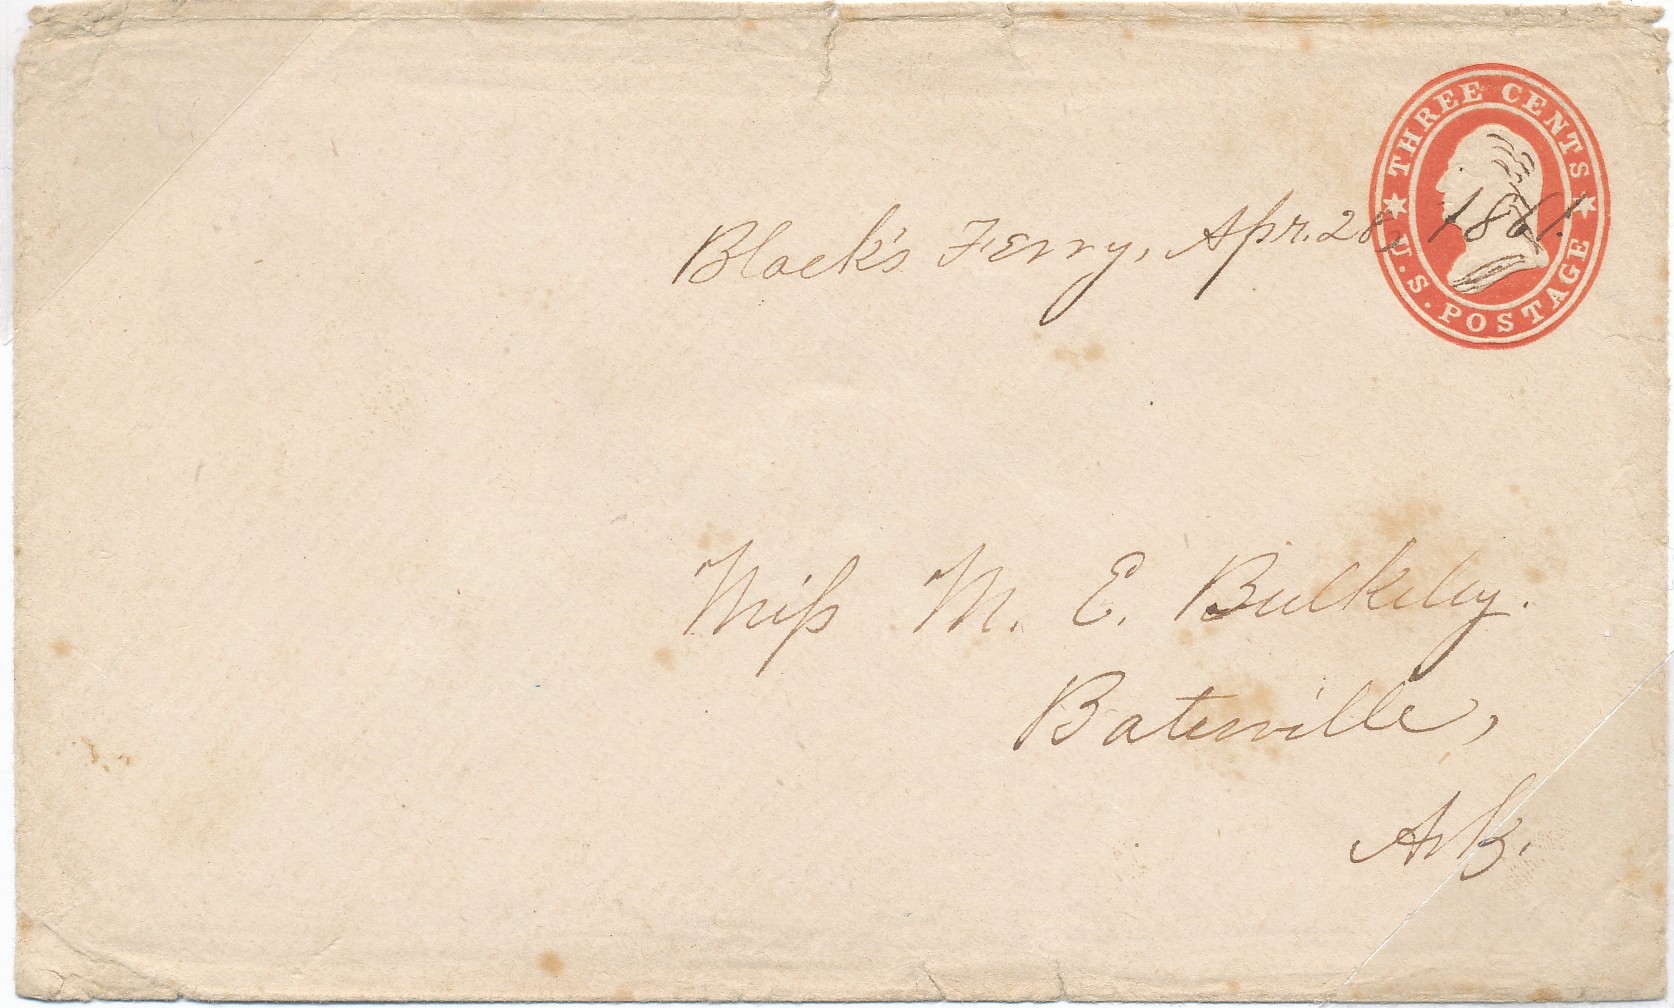 THREE CENTS
U.S. POSTAGE
Black's Ferry, Apr. 28, 1861.
Miss M. E. Bulkeley.
Batesville,
Ark.